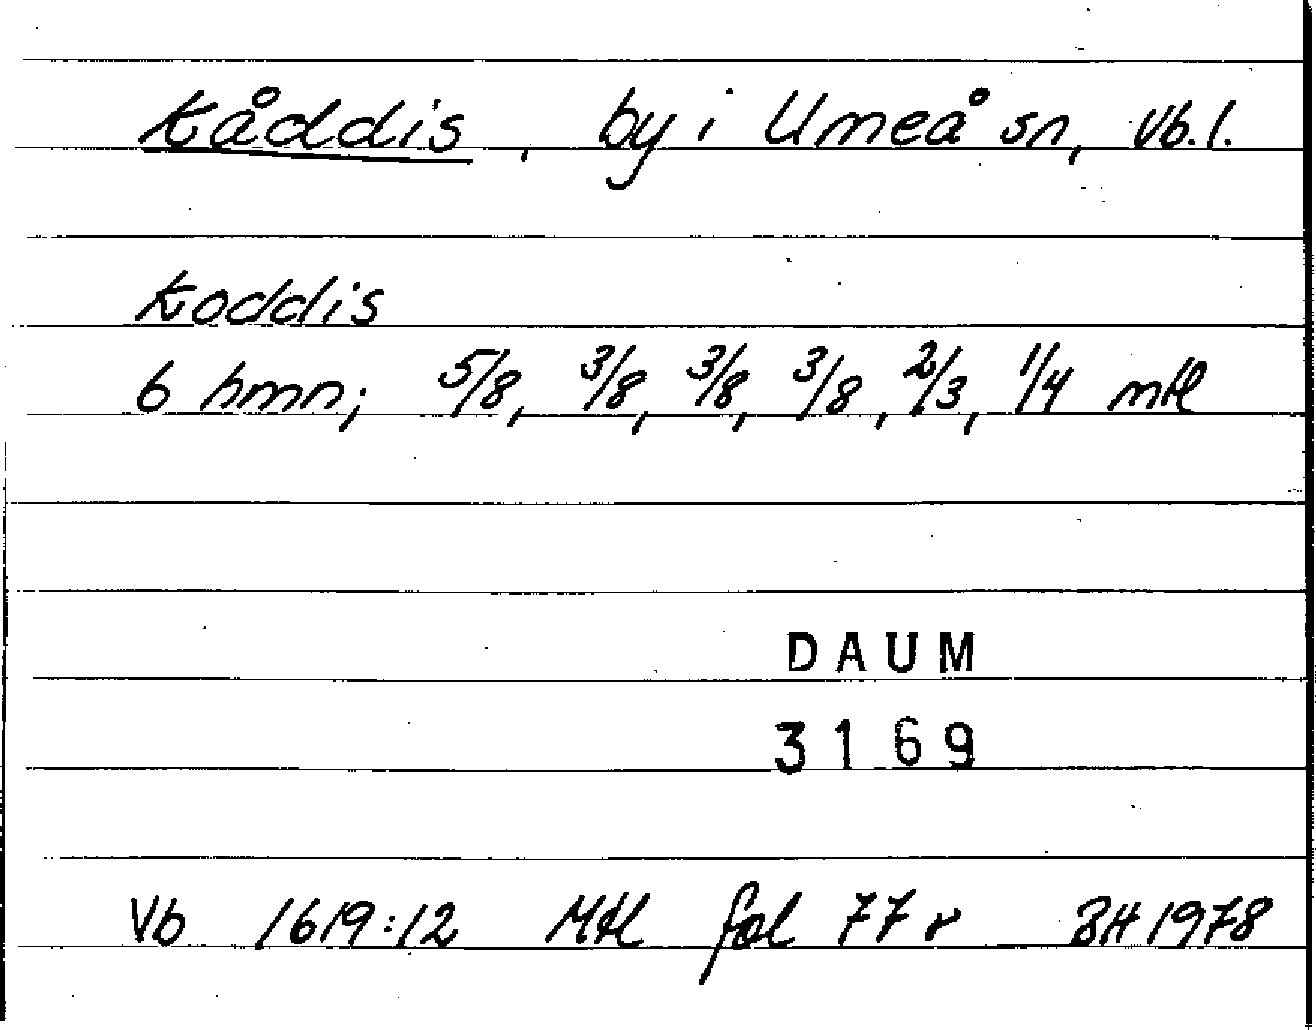 Kåddis, by i Umeå sn, Vb. l.
Koddis
6 hmn; 5/8, 3/8, 3/8, 3/8, 2/3, 1/4 mtl
DAUM
3169
Vb 1619:12 Mtl fol 77 r BH 1978